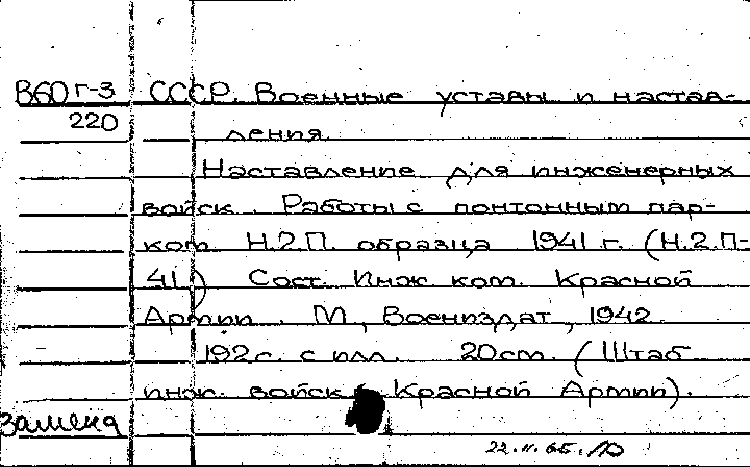 В60г-3 СССР. Военные уставы и настав-
220 ления.
Наставление для инженерных
войск. Работы с понтонным пар-
ком Н.2.П. образца 1941 г. (Н.2.П-
41) Сост. Инж. ком. Красной
Армии. М, Воениздат, 1942.
192с. с илл. 20см. (Штаб
инж. войск Красной Армии).
замена
22.11.65.